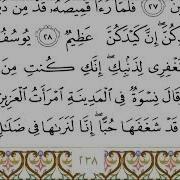 ٢٧ فَلَمَّا رَءَا قَمِيصَهُۥ قُدَّ مِن
كُنَّ إِنَّ كَيْدَكُنَّ عَظِيمٌ ٢٨ يُوسُفُ
غْفِرِى لِذَنۢبِكِ إِنَّكِ كُنتِ مِنَ
قَالَ نِسْوَةٌ فِى ٱلْمَدِينَةِ ٱمْرَأَتُ ٱلْعَزِيزِ
قَدْ شَغَفَهَا حُبًّا إِنَّا لَنَرَىٰهَا فِى ضَلَـٰلٍ
٢٣٨